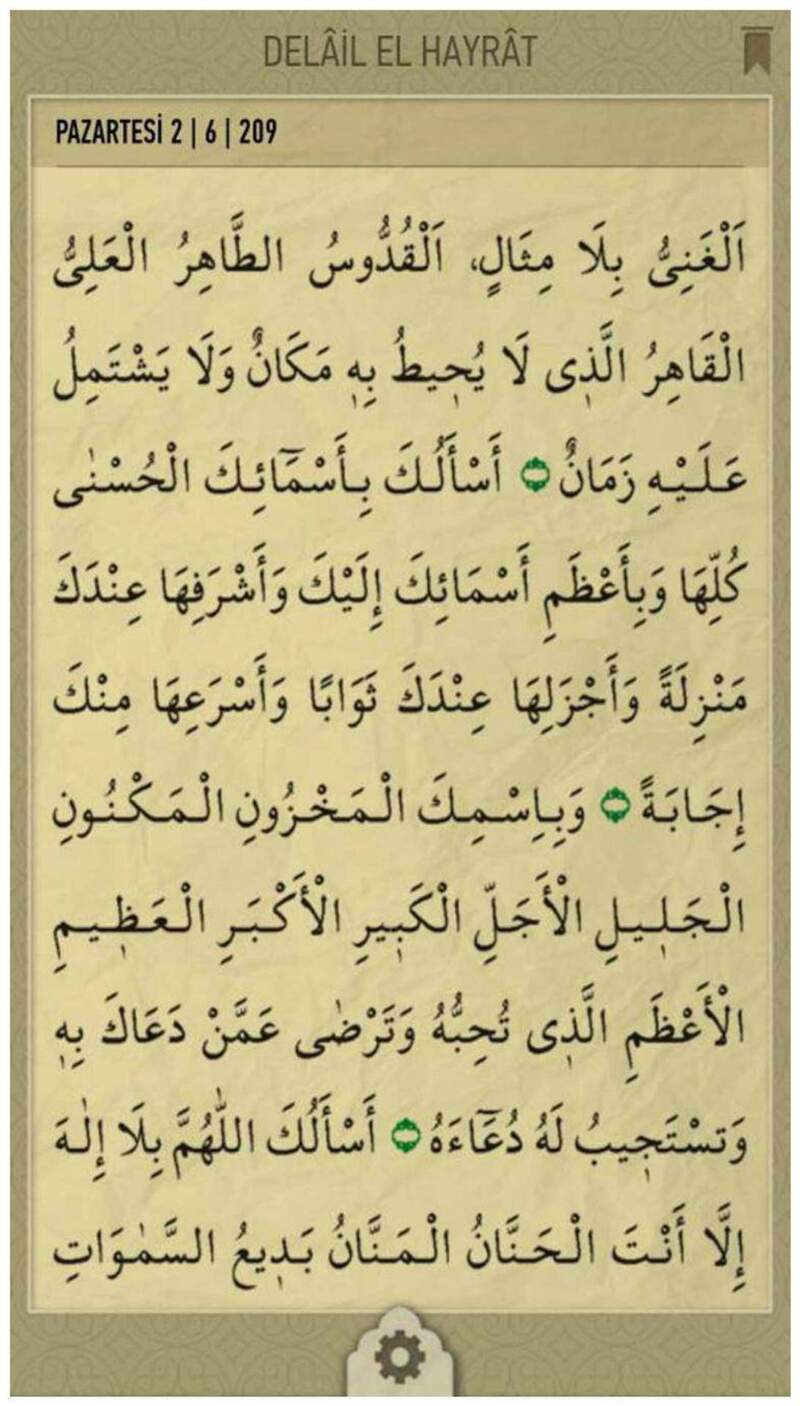 DELÂİL EL HAYRÂT
PAZARTESİ 2 | 6 | 209
اَلْغَنِىُّ بِلَا مِثَالٍ، اَلْقُدُّوسُ الطَّاهِرُ الْعَلِىُّ
الْقَاهِرُ الَّذٖى لَا يُحٖيطُ بِهٖ مَكَانٌ وَلَا يَشْتَمِلُ
عَلَيْهِ زَمَانٌ أَسْأَلُكَ بِأَسْمَٓائِكَ الْحُسْنٰى
كُلِّهَا وَبِأَعْظَمِ أَسْمَائِكَ إِلَيْكَ وَأَشْرَفِهَا عِنْدَكَ
مَنْزِلَةً وَأَجْزَلِهَا عِنْدَكَ ثَوَابًا وَأَسْرَعِهَا مِنْكَ
إِجَابَةً وَبِاِسْمِكَ الْمَخْزُونِ الْمَكْنُونِ
الْجَلٖيلِ الْأَجَلِّ الْكَبٖيرِ الْأَكْبَرِ الْعَظٖيمِ
الْأَعْظَمِ الَّذٖى تُحِبُّهُ وَتَرْضٰى عَمَّنْ دَعَاكَ بِهٖ
وَتسْتَجٖيبُ لَهُ دُعَٓاءَهُ أَسْأَلُكَ اللّٰهُمَّ بِلَا إِلٰهَ
إِلَّا أَنْتَ الْحَنَّانُ الْمَنَّانُ بَدٖيعُ السَّمٰوَاتِ